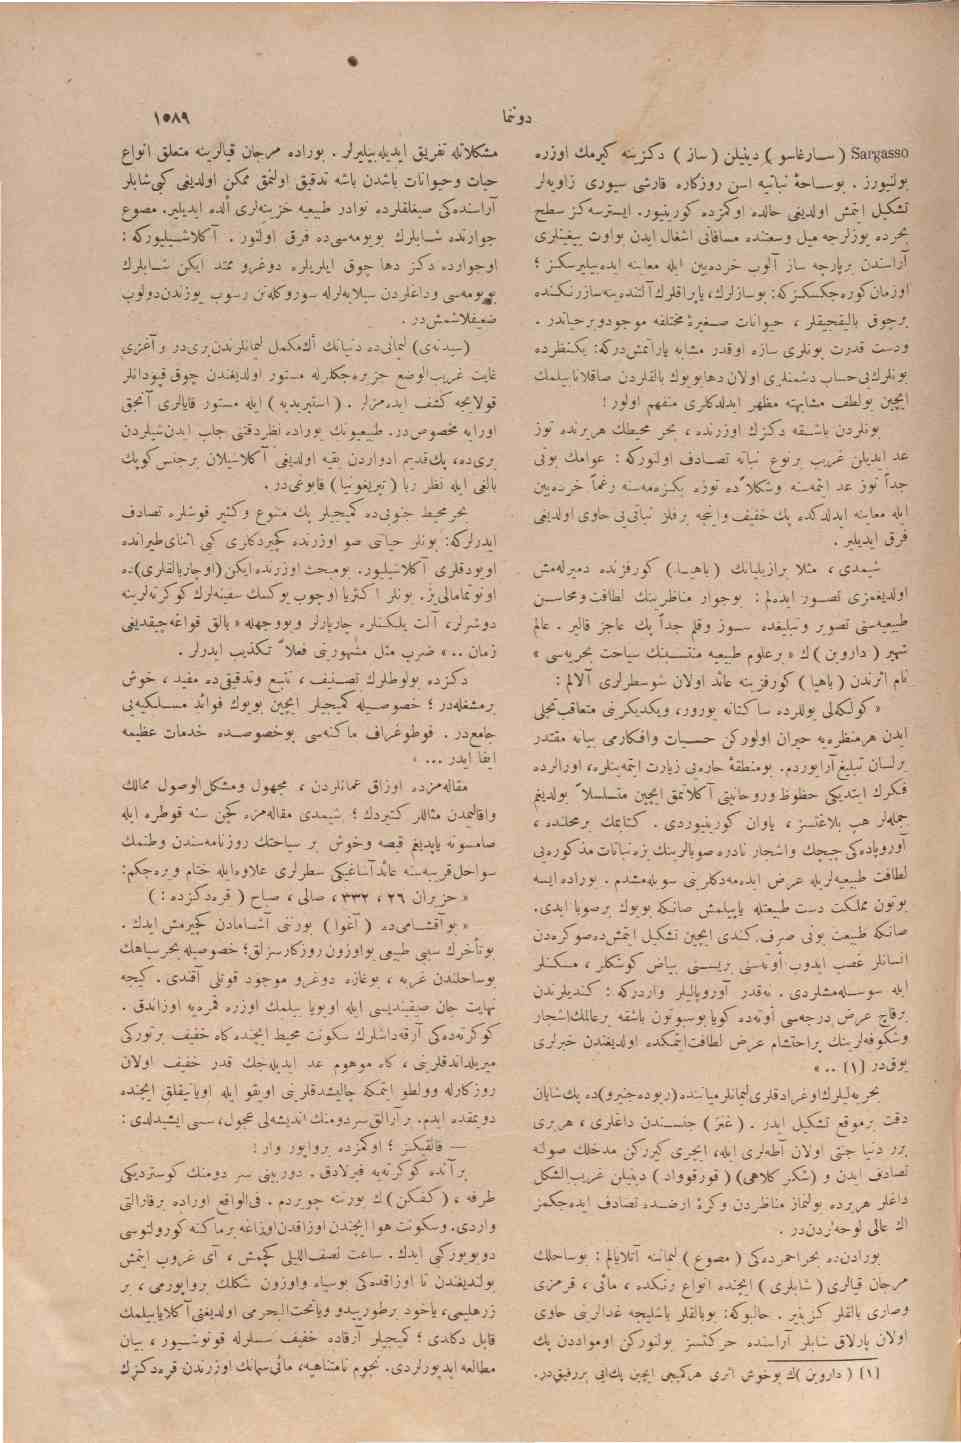 دوننما
١٥٨٩
Sargasso ( سارغاسو ) دینیلن ( ساز ) دکزینه کیرمك اوزره
بولنیورز . بوساحهٔ نباتیه اسن روزکاره قارشی سیوری زاویه‌لر
تشکیل ایتمش اولدیغی حالده اوکمزده کورینیور. ایسترسه‌کز سطح
بحرده یوزلرجه میل وسعتنده مسافاتی اشغال ایدن بواوت ییغینلری
آراسندن برپارچه ساز آلوب خرده‌بین ایله معاینه ایده‌بیلیرسکز ؛
اوزمان کوره‌جکسکزکه: بوسازلرك، یاپراقلرك آلتنده ینه سازرنکنده
برچوق بالیقجیقلر ، حیوانات صغیرهٔ مختلفه موجودوبرحیاتدر .
ودست قدرت بونلری سازه اوقدر مشابه یاراتمش‌درکه: یکنظرده
بونلرك بی‌حساب دشمنلری اولان دهابویوك بالقلردن صاقلانابیلمك
ایچین بولطف مشابهته مظهر ایدلدکلری منفهم اولور!
بونلردن باشقه دکزك اوزرنده ، بحر محیطك هریرنده توز
عد ایدیلن غریب برنوع نباته تصادف اولنورکه : عوامك بونی
جداً توز عد ایتمه‌سنه وشکلاً ده توزه بکزه‌مه‌سنه رغماً خرده‌بین
ایله معاینه ایدلدکده پك خفیف واینجه برفلز نباتی‌یی حاوی اولدیغی
فرق ایدیلیر .
شیمدی ، مثلا برازیلیانك (باهیا) کورفزنده دمیرله‌مش
اولدیغمزی تصور ایده‌لم : بوجوار مناظرینك لطافت ومحاسن
طبیعیه‌سنی تصویر وتبلیغده سوز وقلم جداً پك عاجز قالیر . عالم
شهیر ( داروین ) ك « برعلوم طبیعیه منتسبنك سیاحت بحریه‌سی »
نام اثرندن ( باهیا ) کورفزینه عائد اولان شوسطرلری آلالم :
« کولکه‌لی یوللرده ساکتانه یورور، ویکدیکرینی متعاقب تجلی
ایدن هرمنظره‌یه حیران اولورکن حسیات وافکارمی بیانه مقتدر
برلسان تبلیغ آرایوردم. بومنطقهٔ حاره‌یی زیارت ایتمه‌ینلره، اورالرده
فکرك ایتدیکی حظوظ وروحانیتی آکلاتمق ایچین متسلسلاً بولدیغم
جمله‌لر هپ بلاغتسز ، یاوان کورینیوردی . کتابمك برمحلنده ،
آوروپاده‌کی چیچك واشجار نادره صوبالرینك بزه نباتات مذکوره‌یی
لطافت طبیعیه‌لریله عرض ایده‌مه‌دکلرینی سویله‌مشدم . بوراده ایسه
بوتون مملکت دست طبیعتله یاپیلمش صانکه بویوك برصوبا ایدی.
صانکه طبیعت بونی صرف کندی ایچین تشکیل ایتمش‌ده صوکره‌دن
انسانلر غصب ایدوب اوته‌سنی بریسنی بیاض کوشکلر ، مسکنلر
ایله سوسله‌مشلردی . نه‌قدر آوروپالیلر واردرکه : کندیلرندن
برقاچ عرض درجه‌سی اوته‌ده کویا بوسبوتون باشقه برعالمك اشجار
وشکوفه‌لرینك پراحتشام عرض لطافت ایتمکده اولدیغندن خبرلری
یوق‌در [١] .. »
بحریه‌لیلرك اوغرادقلری لیمانلر میاننده (ریوده‌جنیرو)ده پك شایان
دقت برموقع تشکیل ایدر . ( غنز ) جنسندن داغلری ، هربری
برر دنیا جنتی اولان آطه‌لری ایله، ایچری کیررکن مدخلك صولنه
تصادف ایدن و (شکر کلاهی) ( قورقوواد ) دینیلن غریب‌الشکل
داغلر هریرده بولنماز مناظردن وکرهٔ ارضده تصادف ایده‌جکمز
اك عالی لوحه‌لردن‌در .
بورادن‌ده بحراحمرده‌کی ( مصوع ) لیماننه آتلایالم : بوساحلك
مرجان قیالری ( شابلری ) ایچنده انواع رنکده ، مائی ، قرمزی
وصاری بالقلر کزینیر . حالبوکه: بوبالقلر باشلیجه غدالرینی حاوی
اولان پارلاق شابلر آراسنده حرکتسز بولنورکن اوموادдن پك
[١] ( داروین )ك بوخوش اثری هرکمیجی ایچین پك‌ایی بررفیق‌در.
مشکلاتله تفریق ایدیله‌بیلیرلر . بوراده مرجان قیالرینه متعلق انواع
حیات وحیوانات باشدن باشه تدقیق اولنمق ممکن اولدیغی کبی شابلر
آراسنده‌کی صیغلقلرده نوادر طبیعیه خزینه‌لری الده ایدیلیر. مصوع
جوارنده شابلرك بویومه‌سی‌ده فرق اولنور . آکلاشیلیورکه :
اوجوارده دکز دها چوق ایلریلره دوغرو ممتد ایکن شابلرك
بویومه‌سی وداغلردن سیلابه‌لرله سوروکله‌نن رسوب یوزندن دولوب
ضعیفلاشمش‌در .
(سیدنه‌ی) لیمانی‌ده دنیانك اك مکمل لیمانلرندن بری‌در و آغزی
غایت غریب‌الوضع جزیره‌جکلرله مستور اولدیغندن چوق قپودانلر
قولایجه کشف ایده‌مزلر . ( استیریدیه ) ایله مستور قایالری آنجق
اورایه مخصوص‌در. طبیعیونك بوراده نظردقتنی جلب ایدن شیلردن
بری‌ده، پك‌قدیم ادواردن بقیه اولدیغی آکلاشیلان برجنس کوپك
بالغی ایله نظر ربا ( تیریغونیا ) قابوغی‌در .
بحرمحیط جنوبی‌ده کمیجیلر پك متنوع وکثیر قوشلره تصادف
ایدرلرکه: بونلر حیاتی صو اوزرنده کچیردکلری کبی اثنای‌طیرانده
اویودقلری آکلاشیلیور. بومبحث اوزرنده ایکن (اوچاربالقلری)نی ده
اونوتمامالی‌یز. بونلر اکثریا اوچوب یوکسك سفینه‌لرك کوکرته‌لرینه
دوشرلر، آلت یلکنلره چارپارلر وبووجهله « بالق قواغه چیقدیغی
زمان .. » ضرب مثل مشهوریتی فعلاً تکذیب ایدرلر .
دکزده بولوطلرك تصنیف ، تتبع وتدقیقی‌ده مفید ، خوش
برمشغله‌در ؛ خصوصیله کمیجیلر ایچین بویوك فوائد مسلکیه‌یی
جامع‌در . فوطوغراف ماکنه‌سی بوخصوصده خدمات عظیمه
ایفا ایدر ... »
مقاله‌مزده اوزاق عمانلردن ، مجهول ومشکل‌الوصول ممالك
واقالیمدن مثاللر کتیردك ؛ شیمدی مقاله‌مزه کچن سنه قوطره ایله
صامسونه یاپدیغم قیصه وخوش بر سیاحتك روزنامه‌سندن وطنمك
سواحل قریبه‌سنه عائد آشاغیکی سطرلری علاوه‌ایله ختام ویره‌جکم:
« حزیران ٢٦ ، ٣٣٢ ، صالی ، صباح ( قره‌دکزده : )
« بوآقشامی‌ده ( آغوا ) بورننی آشامادن کچیرمش ایدك .
بوتأخرك سببی طبیعی بواوزون روزکارسزلق؛ خصوصیله بحرسیاهك
بوساحلندن غربه ، بوغازه دوغرو موجود قوتلی آقندی . کیجه
نهایت جان صیقیندیسی ایله اویویا بیلمك اوزره قمره‌یه اوزاندق .
کوکرته‌ده‌کی آرقداشلرك سکونت محیط ایچنده کاه خفیف برتورکی
میریلداندقلرینی ، کاه موهوم عد ایدیله‌جك قدر خفیف اولان
روزکارله وولطو ایتمکه چالیشدقلرینی اویقو ایله اویانیقلق ایچنده
دویمقده ایدم. برآرالق سردومنك اندیشه‌لی عجول، سسی ایشیدلدی :
— قالقیکز ؛ اوکمزده بروابور وار !
برآنده کوکرته‌یه فیرلادق . دوربینی سر دومنك کوستردیکی
طرفه ، ( کفکن ) ك بورننه چویردم . فی‌الواقع اوراده برقارالتی
واردی. وسکونت هوا ایچندن اوزاقدن اوزاغه برماکنه کورولتوسی
دویویورکبی ایدك. ساعت نصف‌اللیلی کچمش ، آی غروب ایتمش
بولندیغندن تا اوزاقده‌کی بوسیاه واوزون شکلك بروابورمی ، بر
زرهلیمی، یاخود برطوربیدو ویاتحت‌البحرمی اولدیغنی آکلایابیلمك
قابل دکلدی ؛ کمیجیلر آرقاده خفیف سسلرله قونوشیور ، بیان
مطالعه ایدیورلردی. نجوم نامتناهیه، مائی سمانك اوزرندن قره‌دکزك